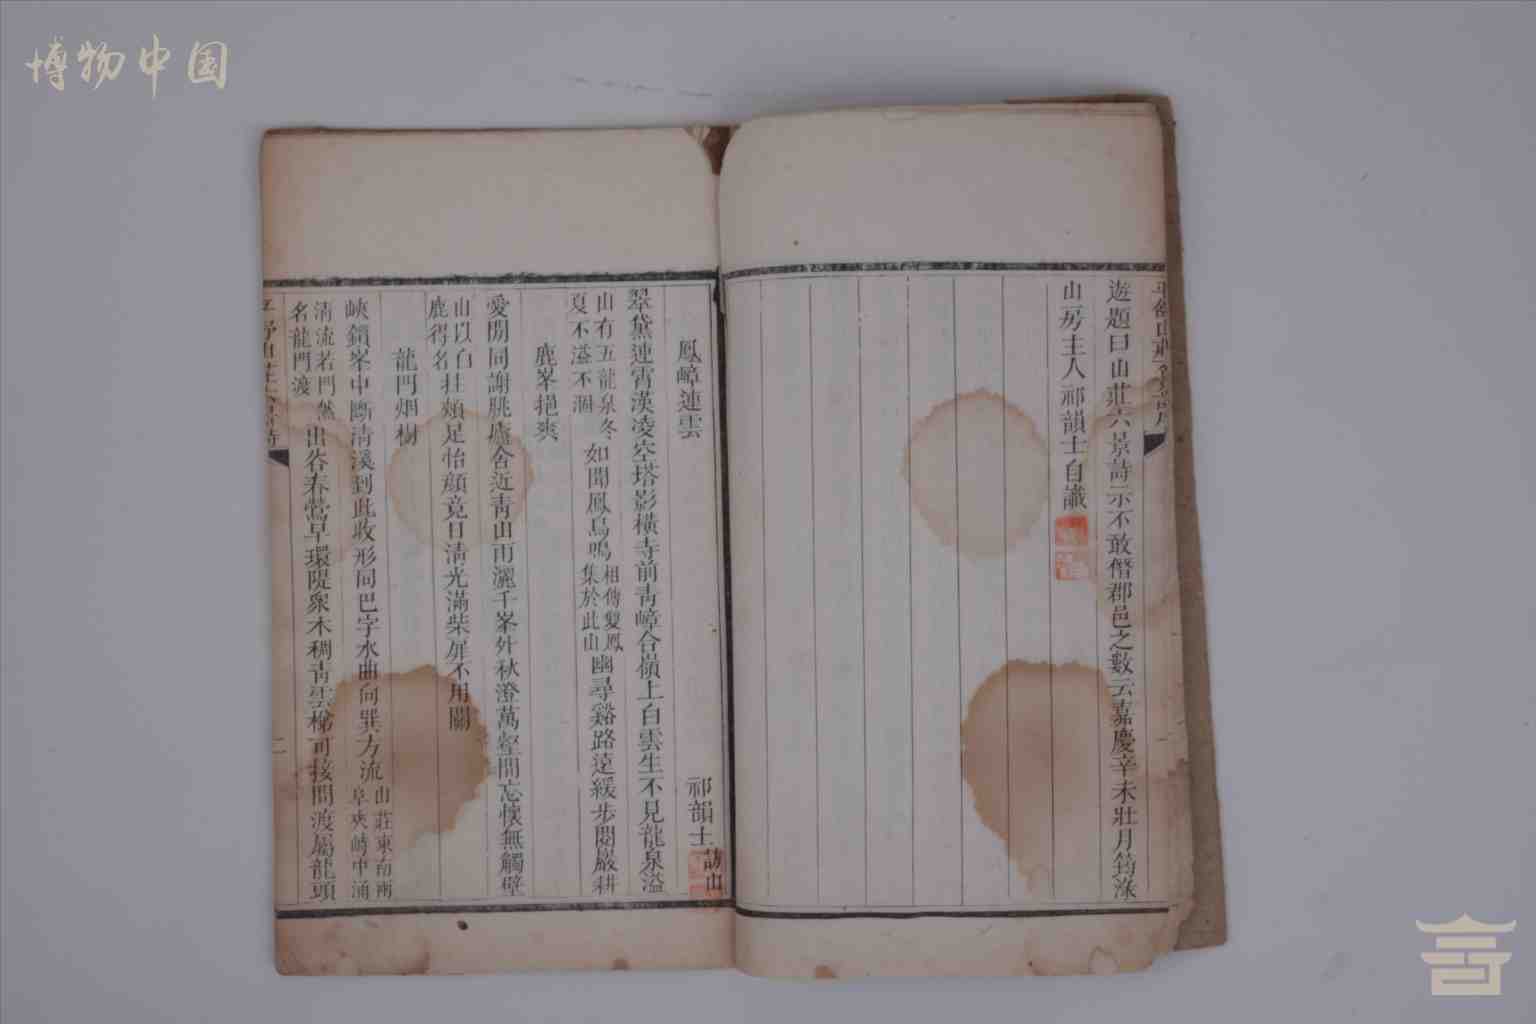 博物中国
遊題曰山莊六景詩示不敢僭郡邑之數云嘉慶辛未壯月筠淥
山房主人祁韻士自識
鳳嶂連雲
祁韻士
訪山
翠黛連霄漢凌空塔影橫寺前青嶂合嶺上白雲生不見龍泉溢
山有五龍泉冬
夏不溢不涸
如聞鳳鳥鳴
相傳雙鳳
集於此山
幽尋谿路遠緩步閱巖耕
鹿峯挹爽
愛閒同謝朓廬舍近青山雨灑千峯外秋澄萬壑間忘懷無觸壁
山以白
鹿得名
拄頰足怡顔竟日清光滿柴屏不用關
龍門烟樹
峽鎖峯中斷清溪到此收形同巴字水曲向巽方流
山莊東南兩
阜夾峙中涌
清流若門然
名龍門渡
出谷春鶯早環隄衆木稠青雲梯可接問渡屬龍頭
二